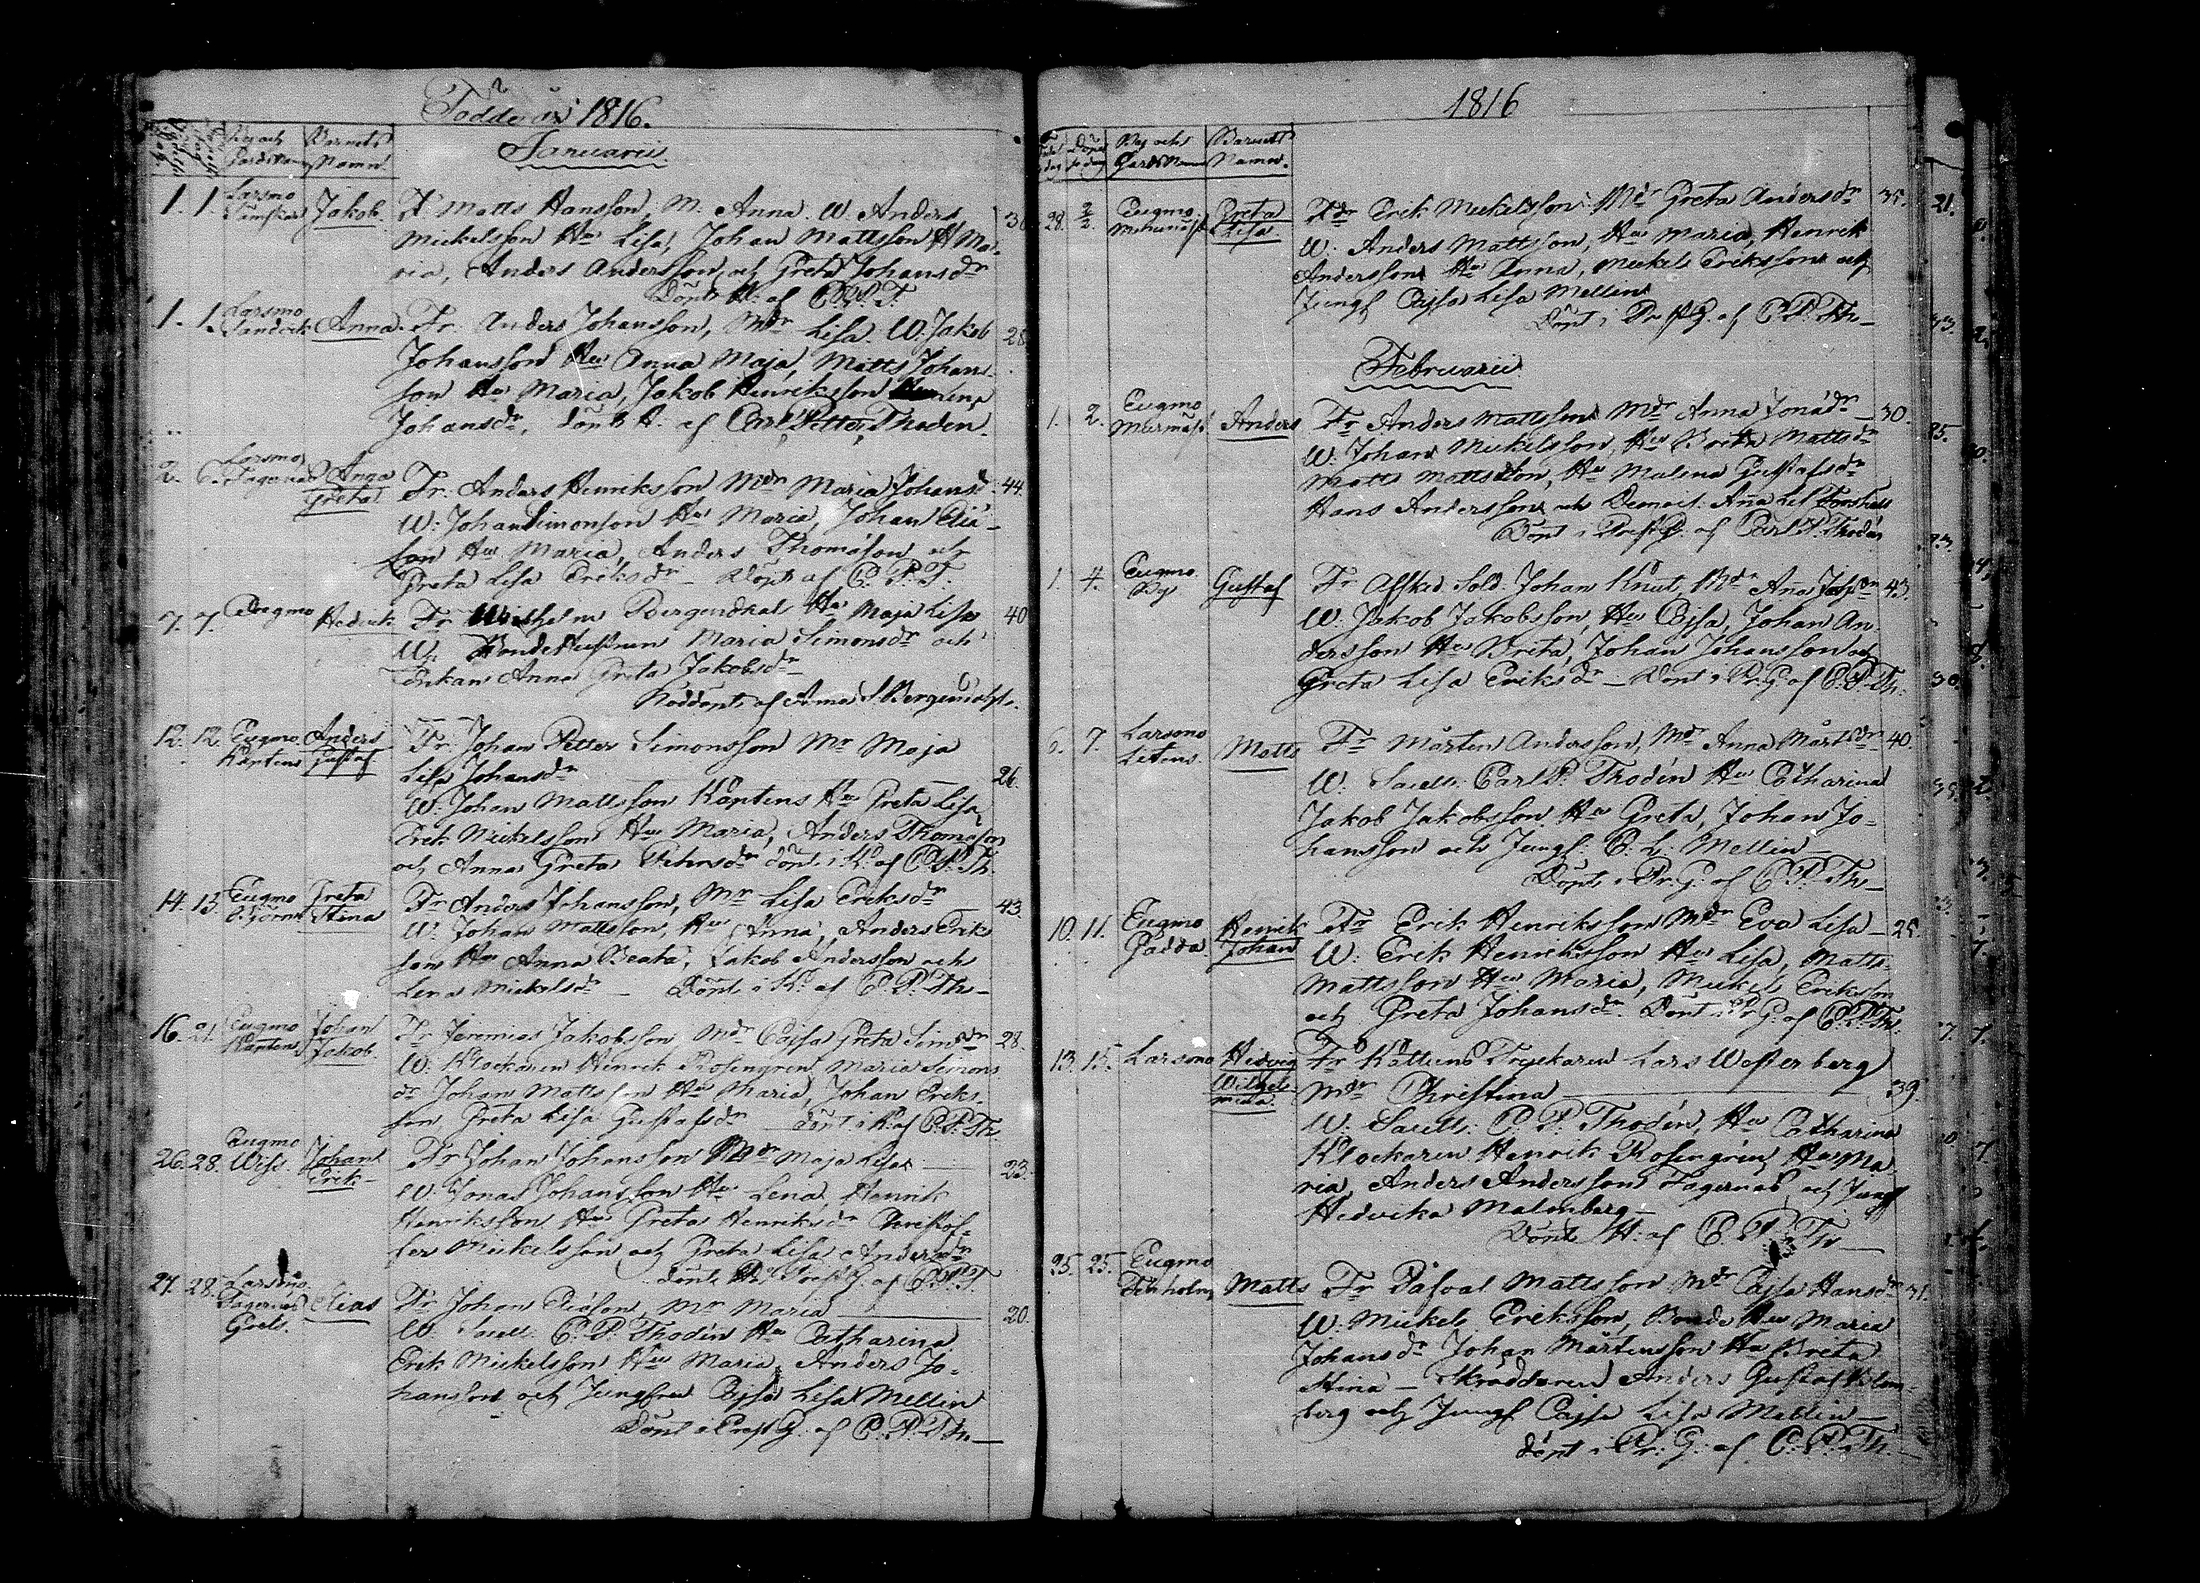 Födde år 1816.
Januarii
By och Gårds Namn
Barnets Namn.
1. 1. Larsmo Jakob. Fr. Matts Hansson, M. Anna. W. Anders 36
Mickelsson Hu Lisa, Johan Mattsson H Ma-
ria, Anders Andersson, och Greta Johansdr
Döpt H. af C. P. T.
1. 1. Larsmo Sandvik Anna. Fr. Anders Johansson, Mdr Lisa. W. Jakob 28
Johansson Hu Anna Maja, Matts Johans-
son Hu Maria, Jakob Henriksson
Johansdr, döpt H. af Carl Petter Thoden.
2. 6. Larsmo Fagernäs Anna Greta Fr. Anders Henriksson Mdr Maria Johansd. 44.
W: Johan Simonsson Hu Maria, Johan Eliæ-
son Hu Maria, Anders Thomasson och
Greta Lisa Eriksdr – Döpt af C. P. T.
7. 7. Hedvik Fr Wilhelm Bergendahl Hu Maja Lisa 40
W. Bonde Hustrun Maria Simonsdr och
Enkan Anna Greta Jakobsdr
Nöddöpt af Anna S. Bergendahl.
12. 12. Eugmo Käntens Anders Gustaf Fr. Johan Petter Simonsson Mr Maja
Lisa Johansdr 26.
W. Johan Mattsson Käntens Hu Greta Lisa,
Erik Mickelsson Hu Maria, Anders Thomasson
och Anna Greta Petersdr döpt i K. af C. P. Th.
14. 15. Eugmo Björn Greta Stina Fr Anders Johansson, Mr Lisa Eriksdr 43.
W. Johan Mattsson, Hu Anna, Anders Eriks
son Hu Anna Beata, Jakob Andersson och
Lena Mickelsdr – Döpt i K. af C. P. Th –
16. 21. Eugmo Käntens Johan Jakob. Fr Jeremias Jakobsson Mdr Cajsa Greta Simsdr 28.
W. Klockaren Henrik Rosengren, Maria Simons
dr Johan Mattsson Hu Maria, Johan Eriks-
son Greta Lisa Gustafsdr – döpt i K. af C. P. Th.
26. 28. Eugmo Wiss. Johan Erik Fr Johan Johansson Mdr Maja Lisa 23.
W. Jonas Johansson Hu Lena, Henrik
Henriksson Hu Greta Henriksdr Christof-
fer Mickelsson och Greta Lisa Andersdr
döpt i PrestG. af C. P. T.
27. 28. Larsmo Fagernäs Elias Fr Johan Eliæson, Mr Maria 20.
W. Sacell. C. P. Thodén Hu Catharina
Erik Mickelsson Hu Maria, Anders Jo-
hansson och Jungfru Cajsa Lisa Mellin
Döpt i PrestG. af C. P. Th –
1816
By och Gårds Namn
Barnets Namn.
28. 2/2. Eugmo Greta Lisa. Fdr Erik Mickelsson Mdr Greta Andersdr 35.
W. Anders Mattsson, Hu Maria, Henrik
Andersson Hu Anna, Mickel Eriksson och
Jungf Cajsa Lisa Mellin
Döpt i Pr G. af C. P. Th –
Februarii
1. 2. Eugmo Anders Fr Anders Mattsson Mdr Anna Jonædr – 30.
W. Johan Mickelsson, Hu Brita Mattsdr
Matts Mattsson, Hu Malena Gustafsdr
Hans Andersson och Demois. Anna Lis
Döpt i PrestG. af Carl P. Thodén
1. 4. Eugmo By Gustaf Fr Afsked. Sold. Johan Knut, Mdr Anna 43.
W. Jakob Jakobsson, Hu Cajsa, Johan An-
dersson Hu Brita, Johan Johansson och
Greta Lisa Eriksdr – Döpt i Pr. G. af C. P. Th.
6. 7. Larsmo Matts Fr Mårten Andersson, Mdr Anna Mårtsdr 40.
W. Sacell. Carl P. Thodén Hu Catharina
Jakob Jakobsson Hu Greta, Johan Jo-
hansson och Jungf. C. L. Mellin –
Döpt i Pr. G. af C. P. Th –
10. 11. Eugmo Gadda. Henrik Johan Fr Erik Henriksson Mdr Eva Lisa – 25.
W. Erik Henriksson Hu Lisa, Matts
Mattsson Hu Maria, Mickel Eriksson
och Greta Johansdr. Döpt i Pr. G. af C. P. Th.
13. 15. Larsmo Hedvig Wilhelmina. Fr Kattuns Tryckaren Lars Westerberg
Mdr Christina 39.
W. Sacell. C. P. Thodén, Hu Catharina
Klockaren Henrik Rosengren, Hu Ma
ria, Anders Andersson Fagernäs, och Jungf
Hedvika Malmberg –
Döpt H. af C. P. Th –
25. 25. Eugmo Matts Fr Påfval Mattsson Mdr Cajsa Hansdr 31.
W. Mickel Eriksson, Bonde Hu Maria
Johansdr Johan Mårtensson Hu Brita
Stina – Skräddaren Anders Gustaf
berg och Jungf Cajsa Lisa Mellin –
döpt i Pr. G. af C. P. Th. –